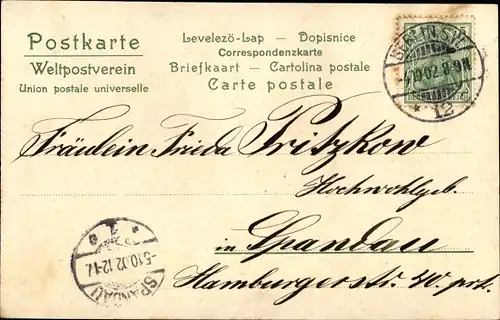 Postkarte
Weltpostverein
Union postale universelle
Levelezö-Lap — Dopisnice
Correspondenzkarte
Briefkaart — Cartolina postale
Carte postale
BERLIN, S.W.
4.10.02. 8-9N.
* 12
Fräulein Frieda Pritzkow
Hochwohlgeb.
in Spandau
Hamburgerstr. 40. prt.
5.10.02.12-1V.
SPANDAU